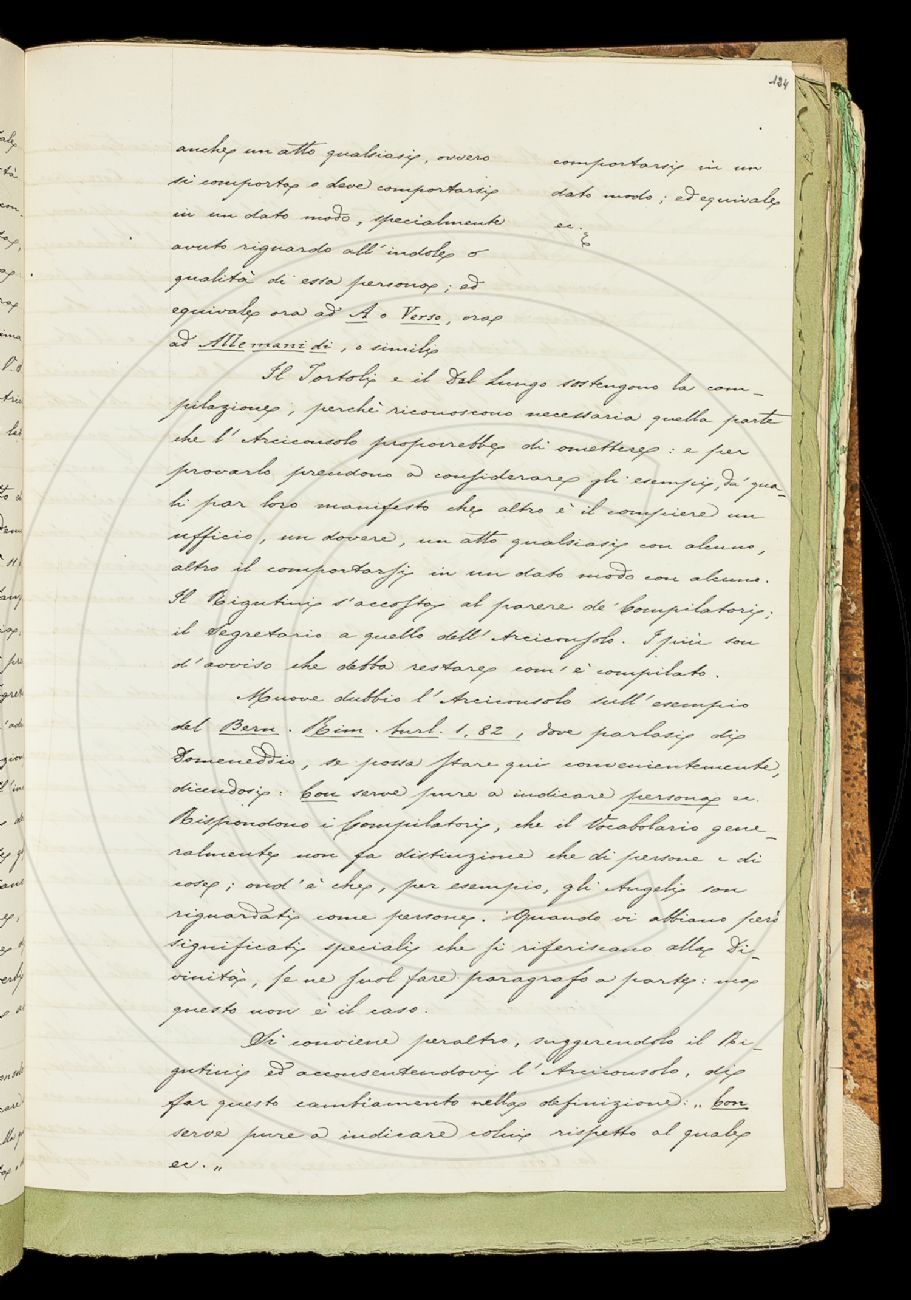 134
anche un atto qualsiasi, ovvero
si comporta o deve comportarsi
in un dato modo, specialmente
avuto riguardo all'indole o
qualità di essa persona; ed
equivale ora ad A o Verso, ora
ad Alle mani di, o simili
comportarsi in un
dato modo; ed equivale
ec.
Il Tortoli e il Del Lungo sostengono la com-
pilazione, perchè riconoscono necessaria quella parte
che l'Arciconsolo proporrebbe di omettere: e per
provarlo prendono a considerare gli esempi, da' qua-
li par loro manifesto che altro è il compiere un
ufficio, un dovere, un atto qualsiasi con alcuno,
altro il comportarsi in un dato modo con alcuno.
Il Rigutini s'accosta al parere de' Compilatori;
il Segretario a quello dell'Arciconsolo. I più son
d'avviso che debba restare com'è compilato.
Muove dubbio l'Arciconsolo sull'esempio
del Bern. Rim. burl. 1, 82, dove parlasi di
Domeneddio, se possa stare qui convenientemente,
dicendosi: Con serve pure a indicare persona ec.
Rispondono i Compilatori, che il Vocabolario gene-
ralmente non fa distinzione che di persone e di
cose; ond'è che, per esempio, gli Angeli son
riguardati come persone. Quando vi abbiano però
significati speciali che si riferiscano alla Di-
vinità, se ne suol fare paragrafo a parte: ma
questo non è il caso.
Si conviene peraltro, suggerendolo il Ri-
gutini ed acconsentendovi l'Arciconsolo, di
far questo cambiamento nella definizione: „ Con
serve pure a indicare colui rispetto al quale
ec. „